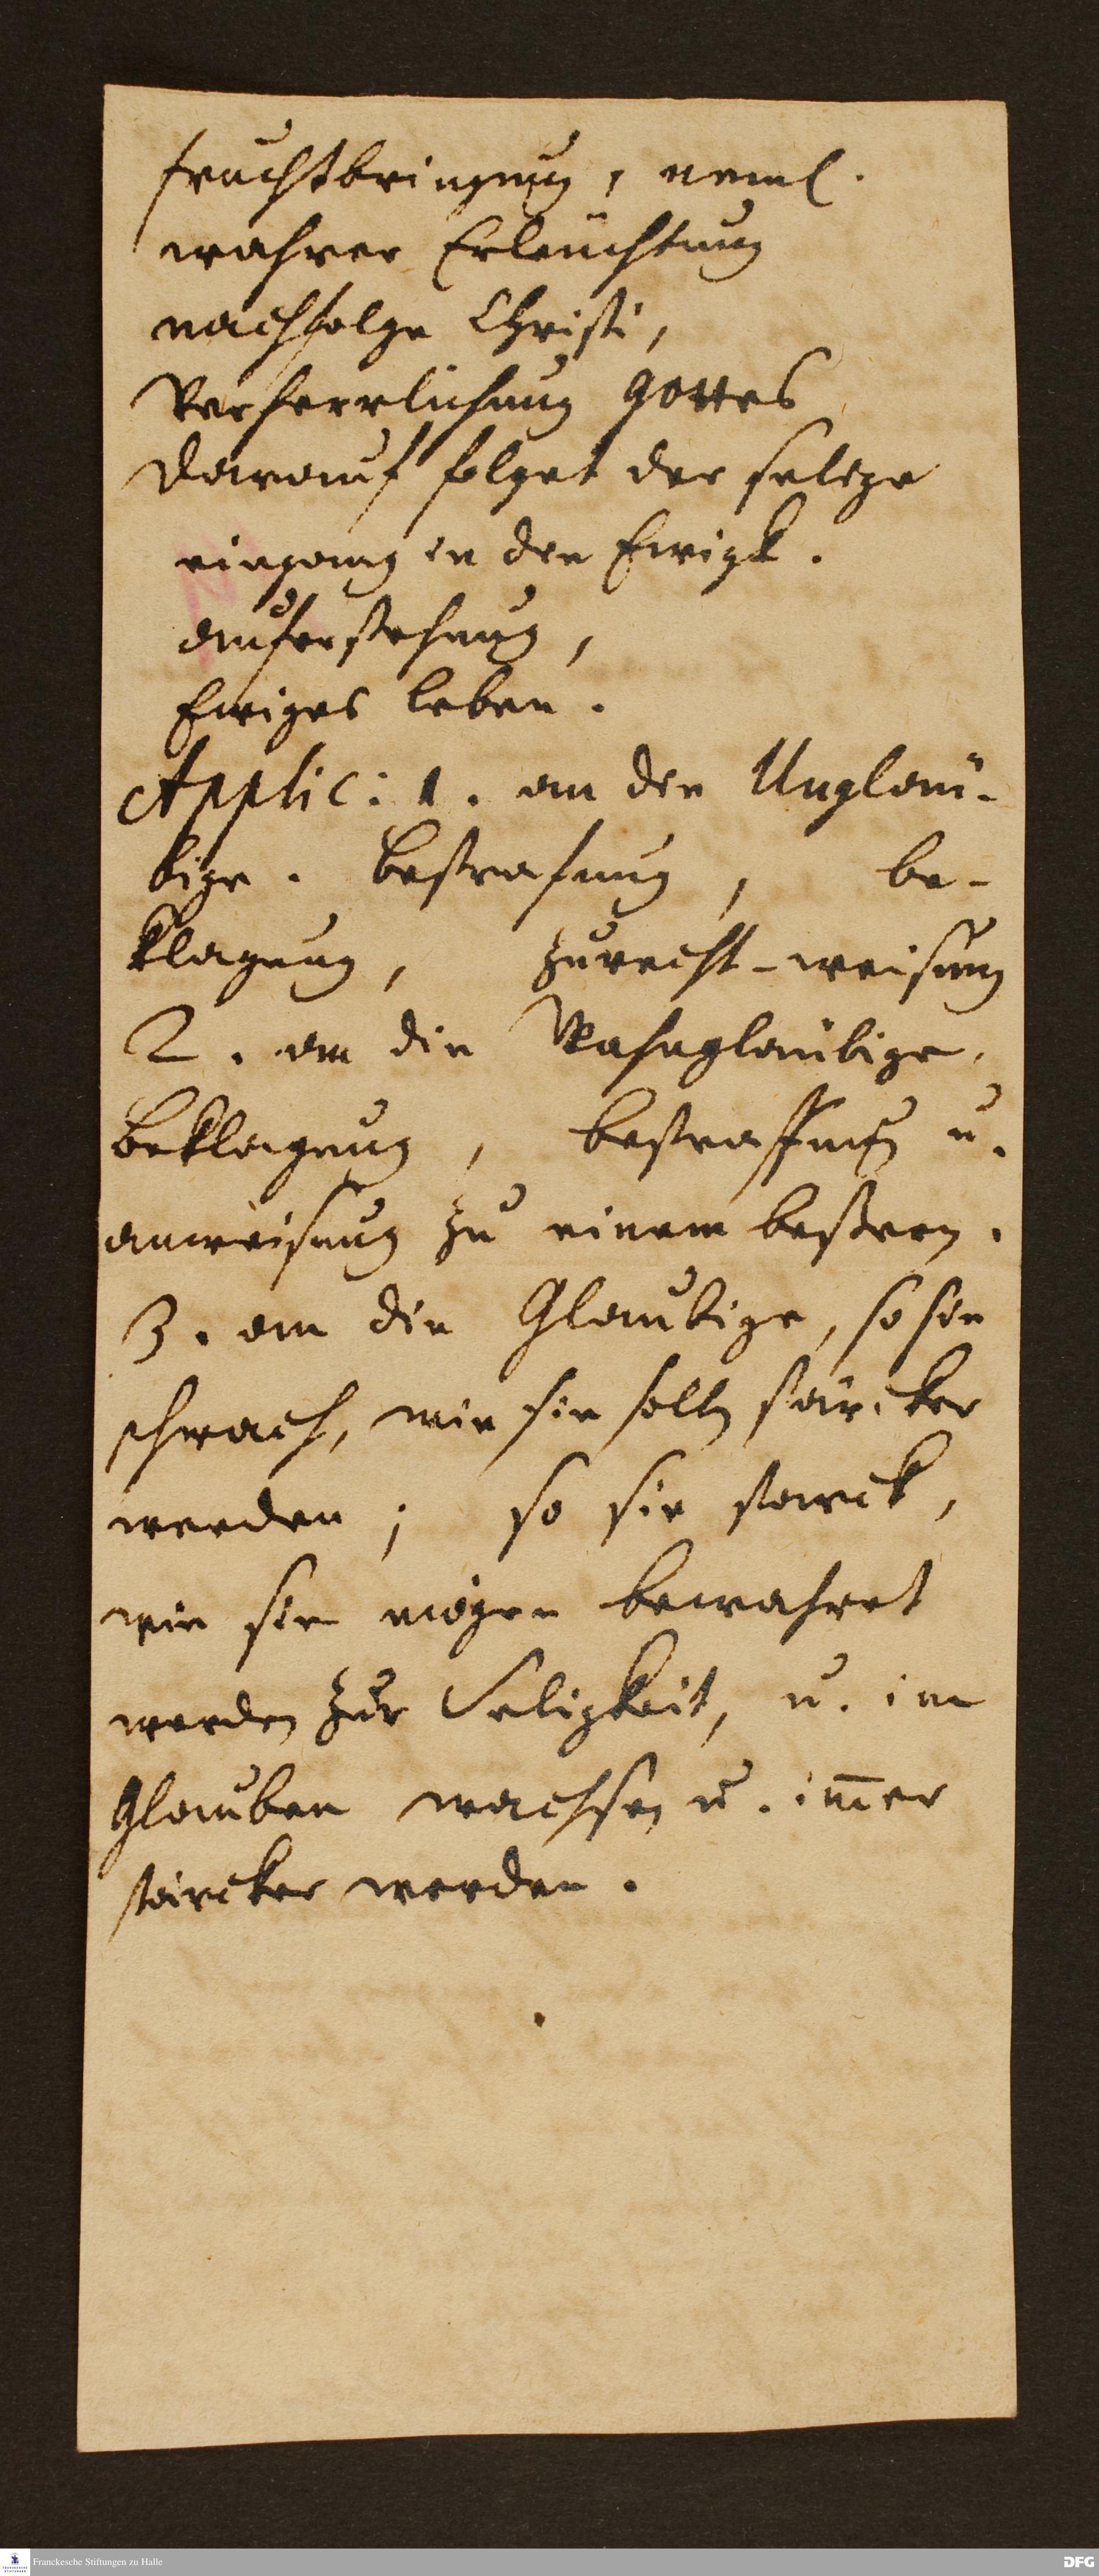 fruchtbringung, neml.
wahrer Erleuchtung
nachfolge Christi,
Verherrlichung Gottes
Darauf folget der selige
eingang in den Ewigk.
aufferstehung,
Ewiges leben.
Applic: 1. an die Unglaü-
bige. bestrafung, be-
klagung, zurecht-weisung
2. an die Wahngläubige.
Beklagung, bestraffung u.
anweisung zu einem bessern.
3. an die Glaubige, so sie
schwach, wie sie solln stärcker
werden; so sie starck,
wie sie mögen bewahret
werden zur Seligkeit, u. im
Glauben wachsen u. im̅er
stärcker werden.
Franckesche Stiftungen zu Halle
DFG